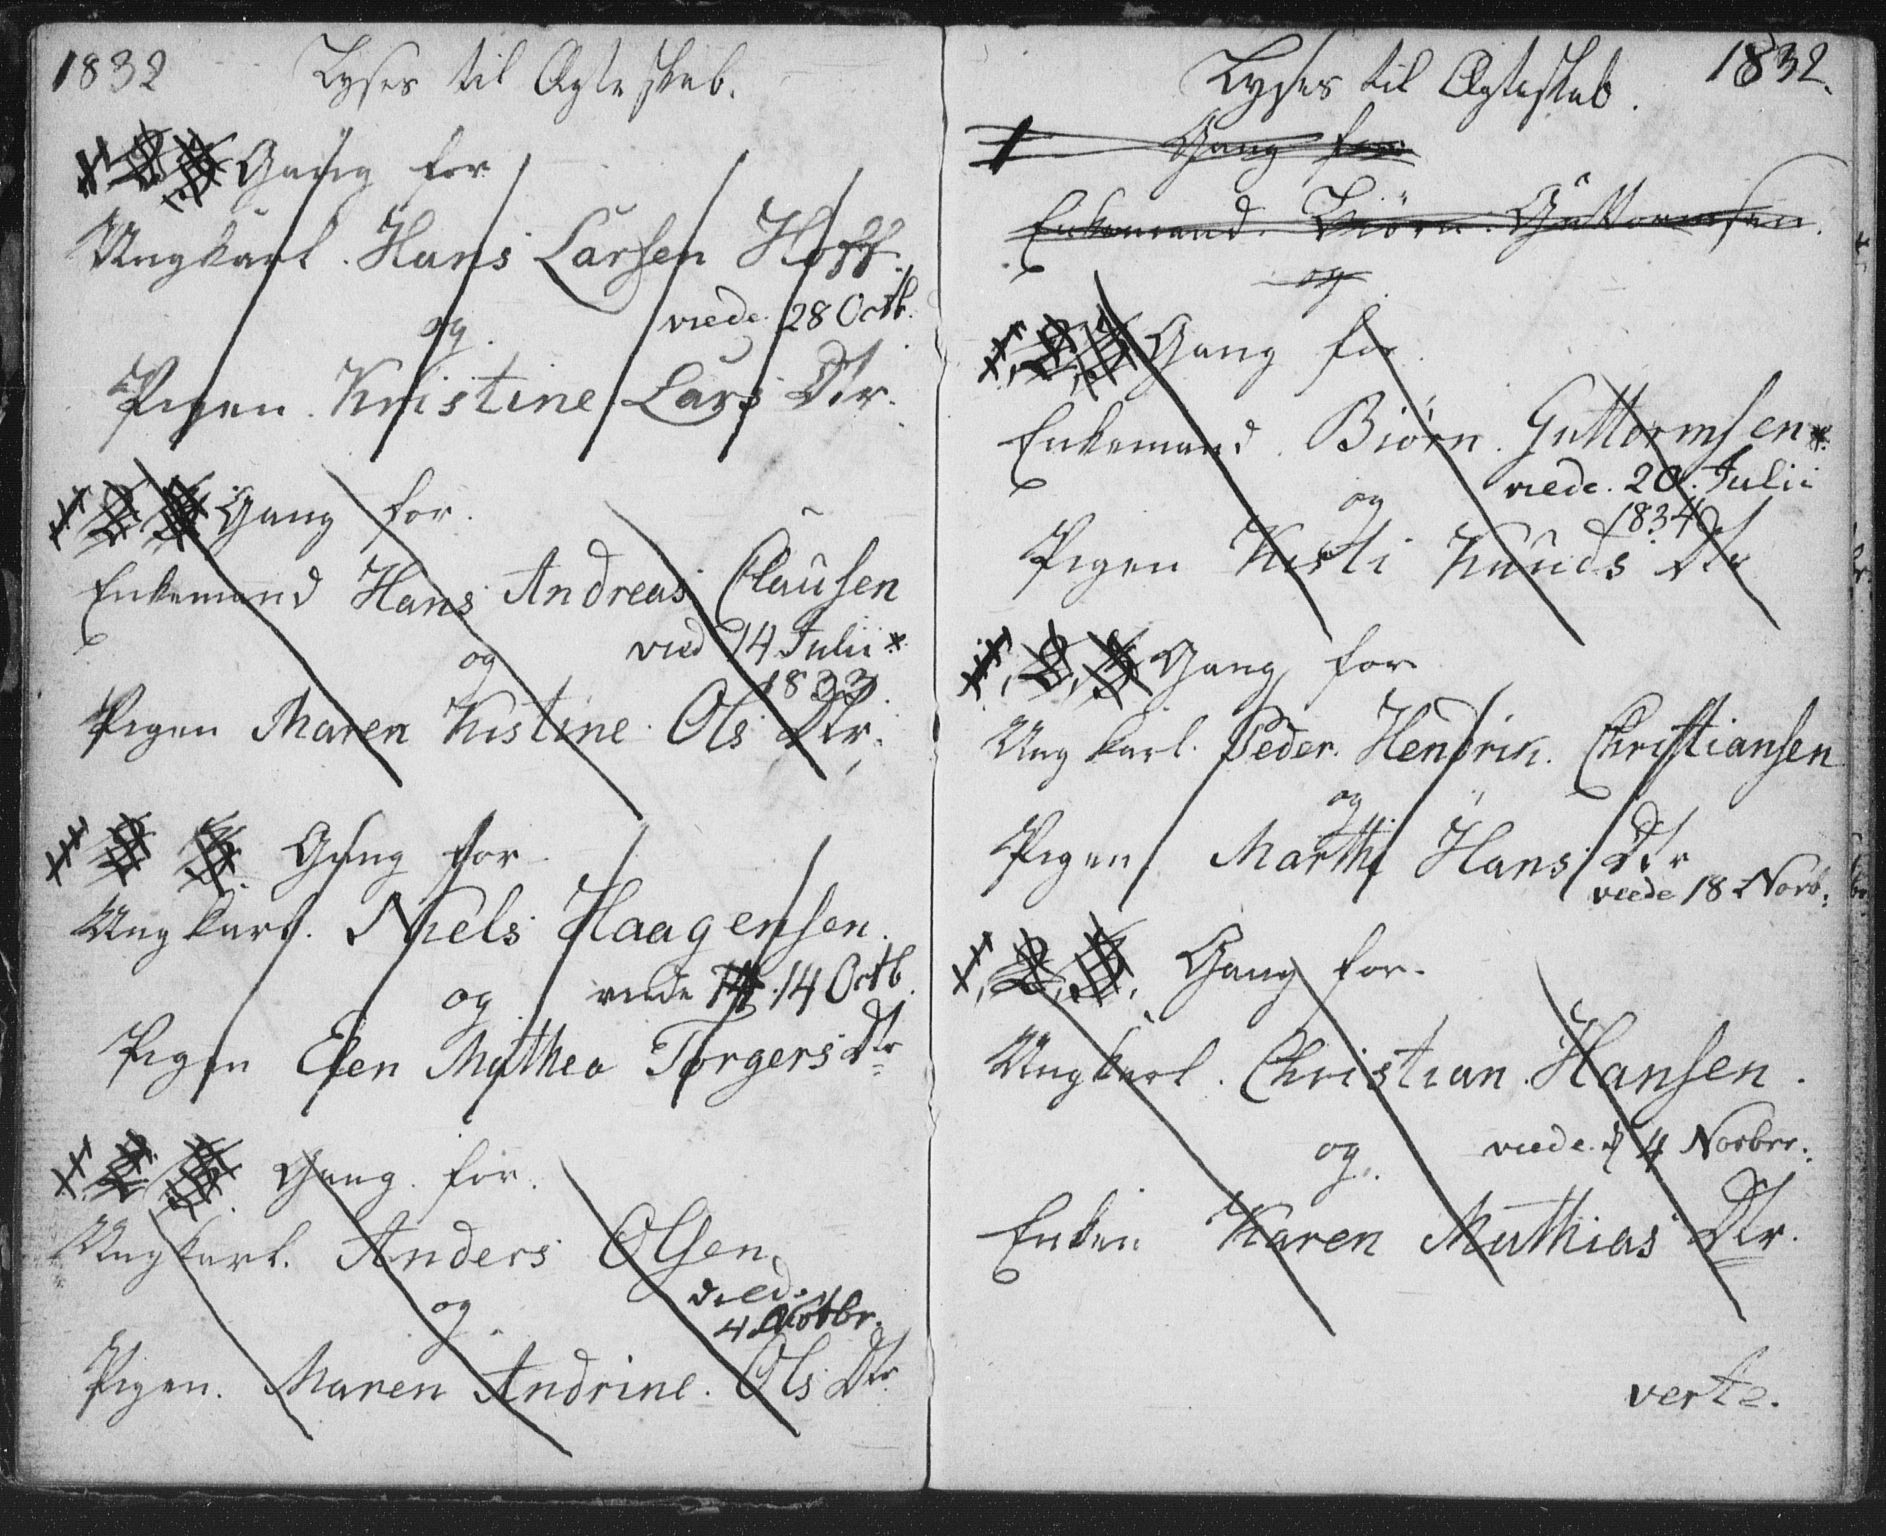 1832 Lyses til Ægteskab.
1 2 3 Gang for
Ungkarl. Hans Larsen Hoff.
og viede 28 Octb.
Pigen. Kristine Lars Dtr.
1 2 3 Gang for.
Enkemand Hans Andreas Clausen
og vied 14 Julii *
1833.
Pigen Maren Kistine Ols Dtr.
1 2 3. Gang for
Ungkarl. Niels Haagensen.
og viede 14 Octb.
Pigen Elen Mathea Torgers Dtr
1 2 3. Gang for.
Ungkarl. Anders Olsen.
og
4 Novbr.
Pigen. Maren Andrine. Ols Dtr
Lyses til Ægteskab. 1832.
1 Gang for
Enkemand. Biörn. Guttormsen.
og
1, 2, 3 Gang for.
Enkemand. Biörn. Guttormsen *.
og viede. 20. Julii
1834
Pigen Kisti Knuds Dtr
1, 2, 3 Gang for
Ungkarl. Peder. Hendrik. Christiansen
og
Pigen Marthe Hans Dtr
viede 18 Novb.
1, 2, 3. Gang for.
Ungkarl. Christian. Hansen.
og viede. d 4 Novbr.
Enken Karen Mathias Dtr.
verte.